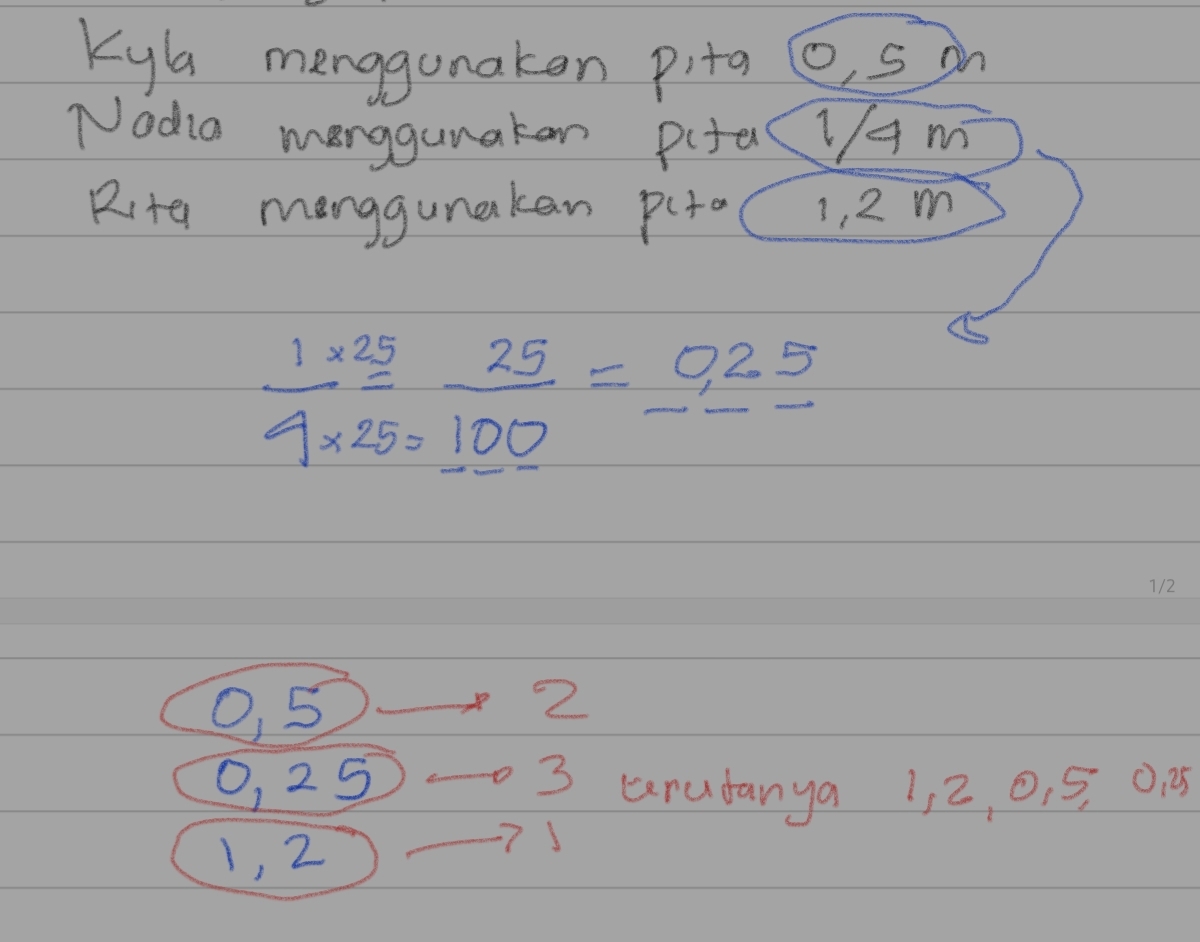 Kyla menggunakan pita 0,5 m
Nadia menggunakan pita 1/4 m
Rita menggunakan pita 1,2 m
1 × 25 25 = 0,25
4 × 25 = 100
1/2
0,5 → 2
0,25 → 3 terutanya 1,2, 0,5, 0,25
1,2 → 1